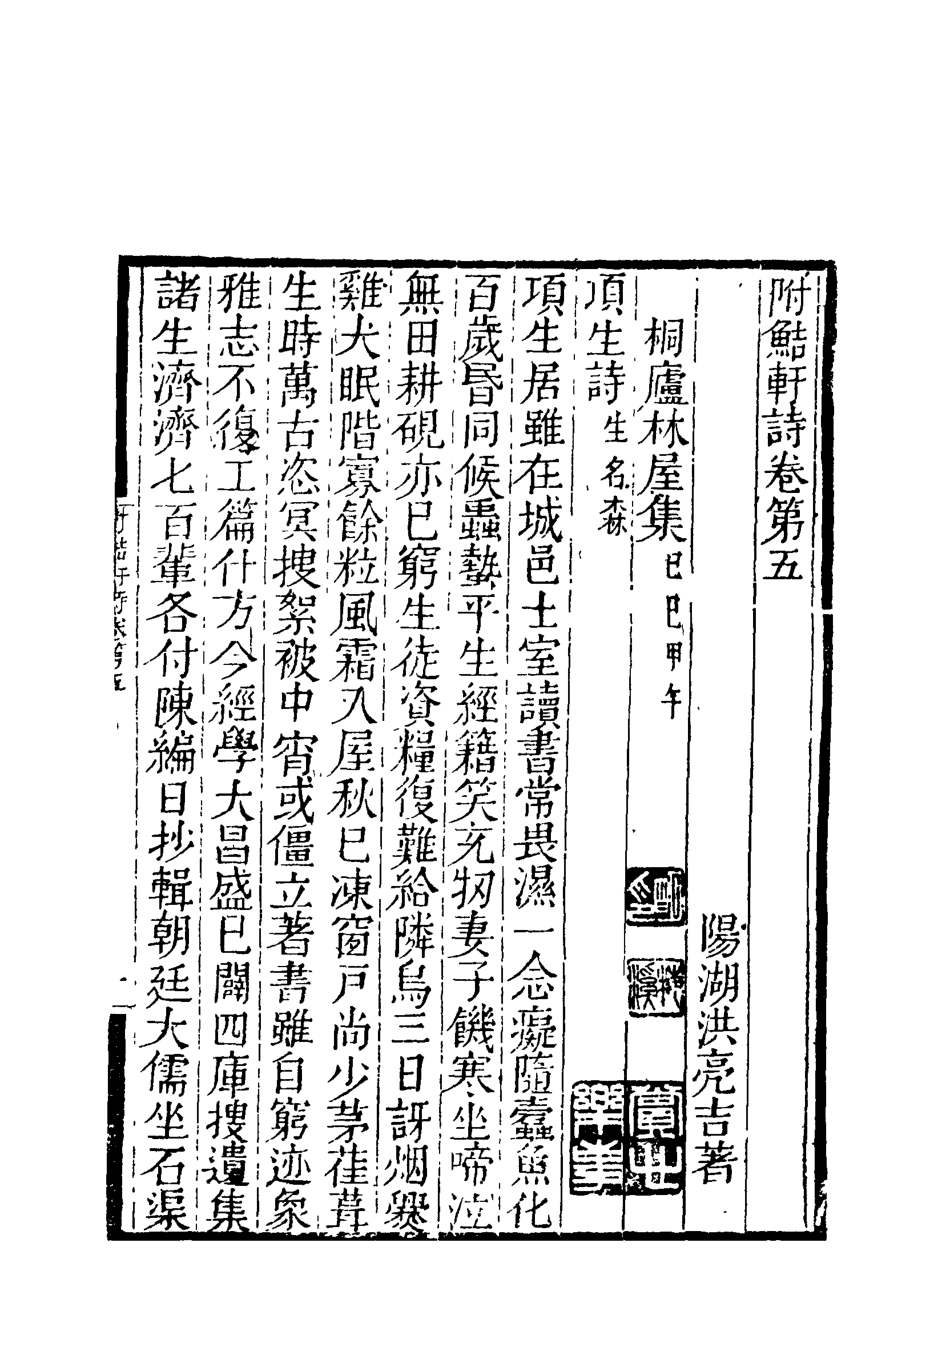 附鮚軒詩卷第五
陽湖洪亮吉著
桐廬林屋集 己巳甲午
項生詩 生名森
項生居雖在城邑土室讀書常畏濕一念癡隨蠹魚化
百歲昏同候蟲蟄平生經籍笑充牣妻子饑寒坐啼泣
無田耕硯亦巳窮生徒資糧復難給隣烏三日訝烟爨
雞犬眠階寡餘粒風霜入屋秋巳凍窗戸尚少茅茬葺
生時萬古恣冥搜絮被中宵或僵立著書雖自窮迹象
雅志不復工篇什方今經學大昌盛巳闢四庫搜遺集
諸生濟濟七百輩各付陳編日抄輯朝廷大儒坐石渠